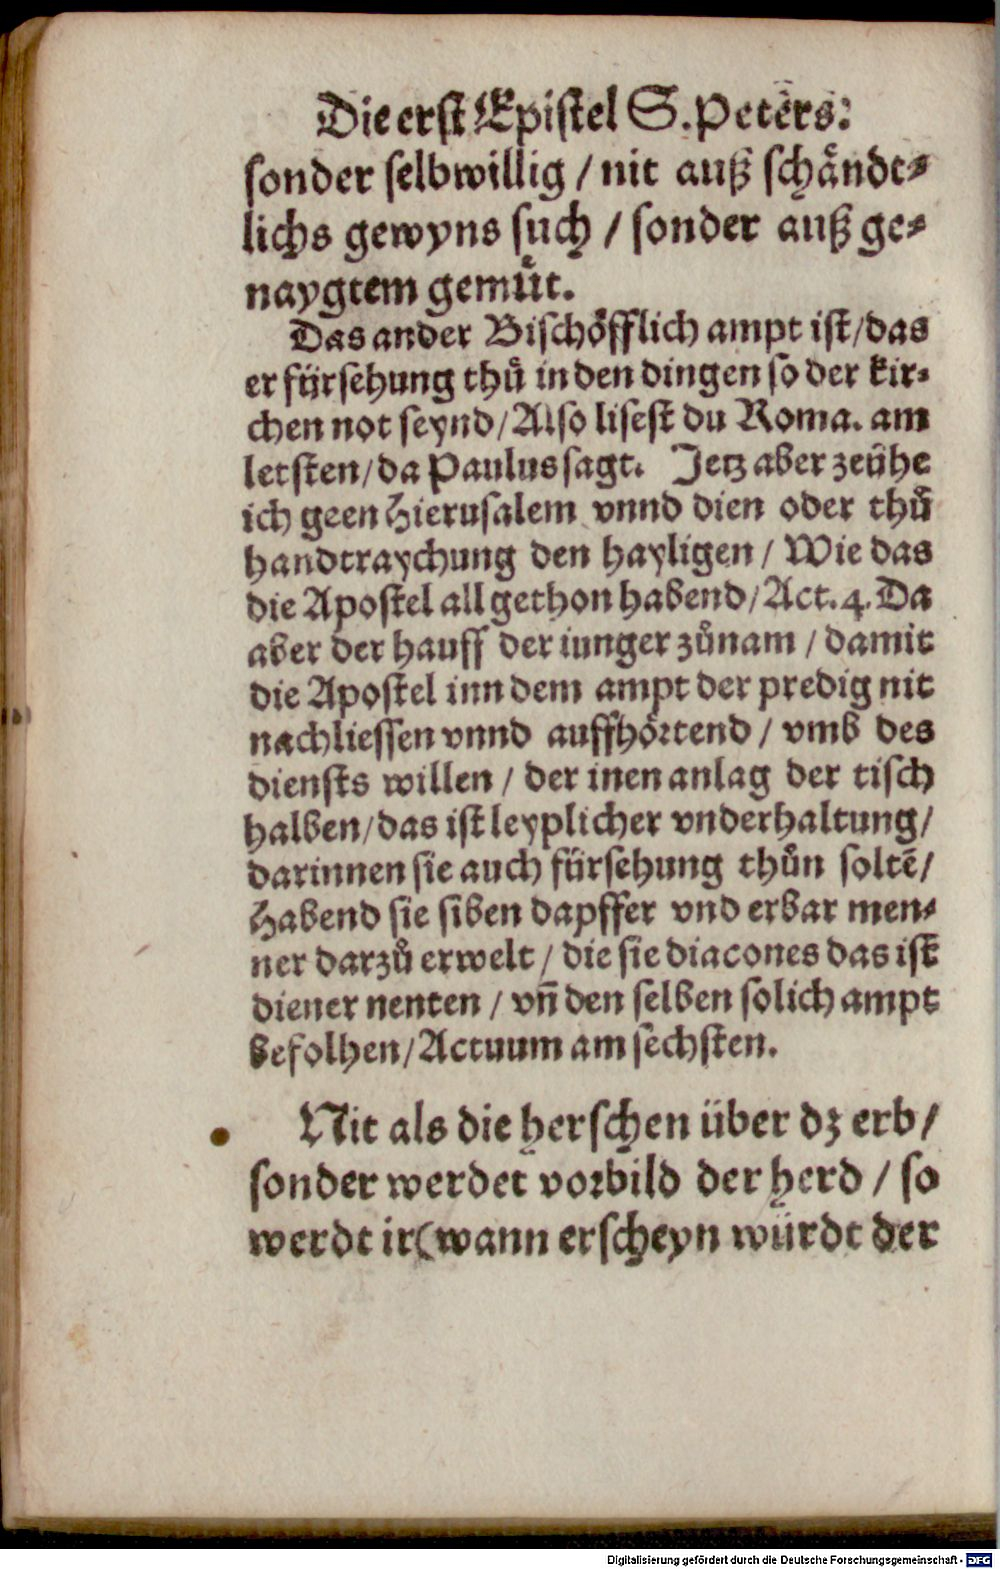 Die erst Epistel S. Peters:
sonder selbwillig / nit auß schåndt⸗
lichs gewyns such / sonder auß ge⸗
naygtem gemuͤt.
Das ander Bischöfflich ampt ist / das
er fürsehung thuͦ in den dingen so der kir⸗
chen not seynd / Also lisest du Roma. am
letsten / da Paulus sagt. Jetz aber zeühe
ich geen Hierusalem vnnd dien oder thuͦ
handtraychung den hayligen / Wie das
die Apostel all gethon habend / Act. 4. Da
aber der hauff der iunger zuͦnam / damit
die Apostel inn dem ampt der predig nit
nachliessen vnnd auffhoͤrtend / vmb des
diensts willen / der inen anlag der tisch
halben / das ist leyplicher vnderhaltung /
darinnen sie auch fürsehung thuͦn soltē /
Habend sie siben dapffer vnd erbar men⸗
ner darzuͦ erwelt / die sie diacones das ist
diener nenten / vñ den selben solich ampt
befolhen / Actuum am sechsten.
Nit als die herschen über dz erb /
sonder werdet vorbild der herd / so
werdt ir (wann erscheyn würdt der
Digitalisierung gefördert durch die Deutsche Forschungsgemeinschaft - DFG